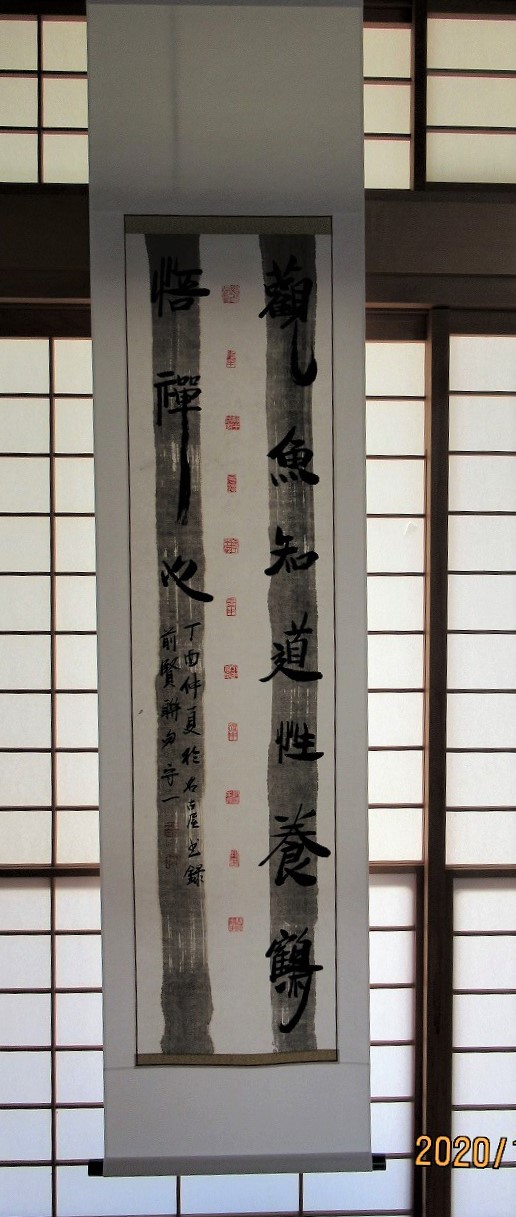 觀魚知道性養鶴
悟禪心
丁酉仲夏於名古屋書錄
前賢聯句守一
2020/1